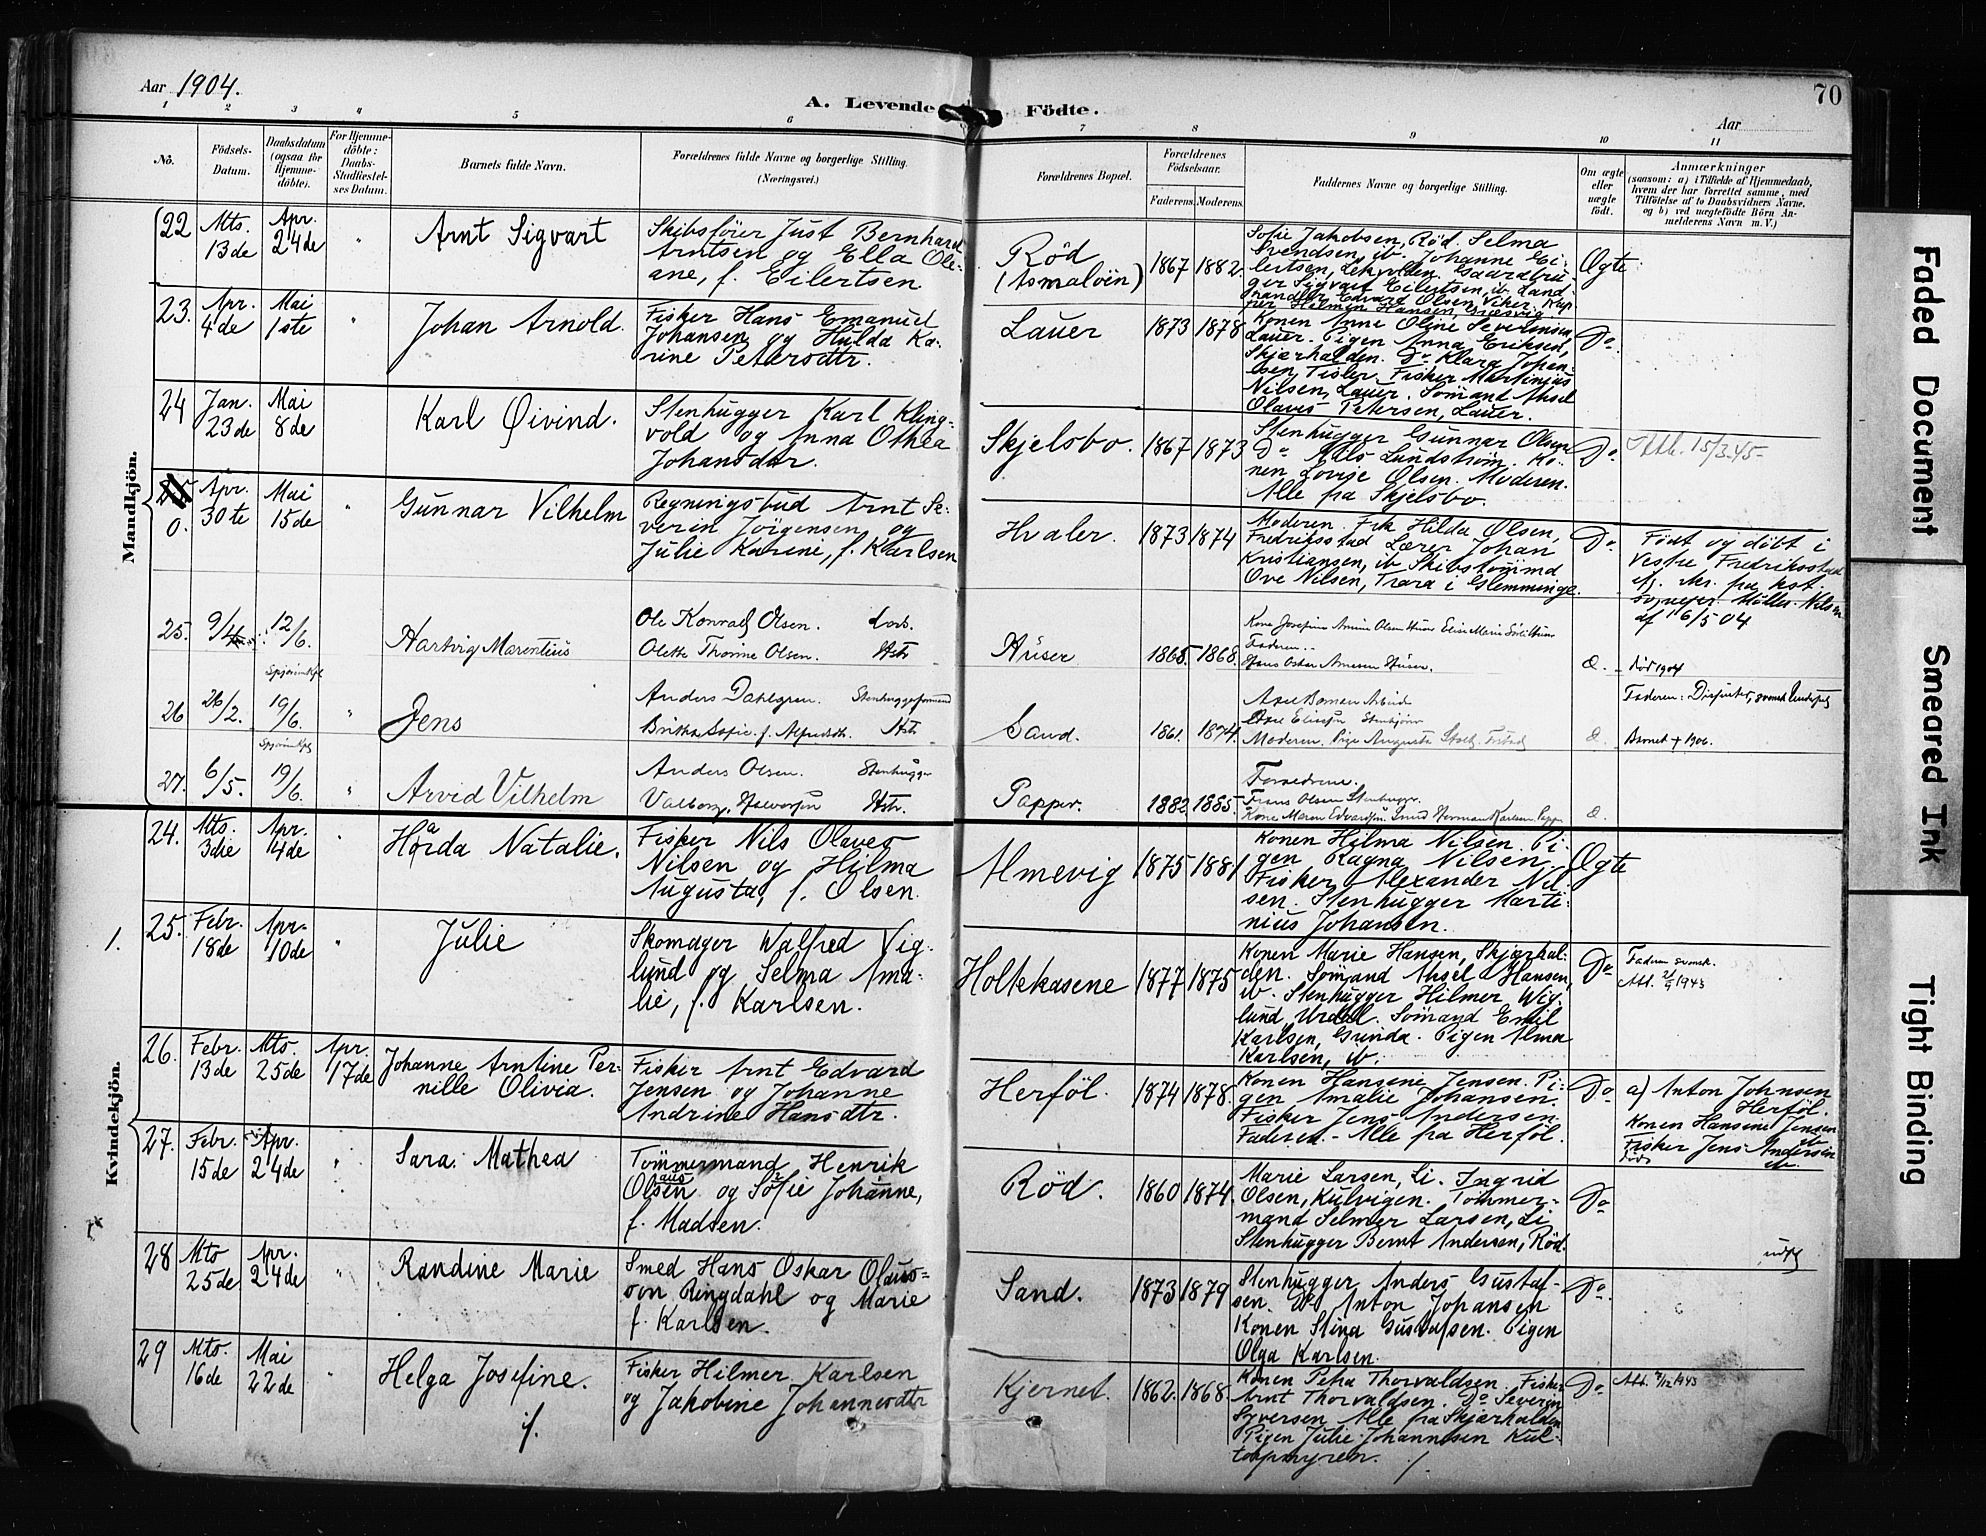 Aar 1904.
A. Levende Födte.
70
Aar
1 2 3 4 5 6 7 8 9 10 11
No.
Födsels-
Datum.
Daabsdatum
(ogsaa for
Hjemme-
döbte).
For Hjemme-
döbte:
Daabs-
Stadfæstel-
ses Datum.
Barnets fulde Navn.
Forældrenes fulde Navne og borgerlige Stilling.
(Næringsvei.)
Forældrenes Bopæl.
Forældrenes
Födselsaar.
Faderens. Moderens.
Faddernes Navne og borgerlige Stilling.
Om ægte
eller
uægte
födt.
Anmærkninger
(saasom: a) i Tilfælde af Hjemmedaab,
hvem der har forrettet samme, med
Tilföielse af to Daabsvidners Navne.
og b) ved uægtefödte Börn An-
melderens Navn m. V.)
Mandkjön.
22 Mts. 13de Apr. 24de " Arnt Sigvart
Skibsförer Just Bernhard
Arntsen og Ella Ole-
ane, f. Eilertsen
Röd
(Asmalöen)
1867 1882.
Sofie Jakobsen, Röd. Selma
Svendsen, ib. Johanne Ei-
lertsen, Gaardbru-
ger Sigvart Eilertsen, ib. Land-
handler Edvard Olsen, Viker.
Hilmen Hansen,
Ægte
23. Apr. 4de Mai 1ste " Johan Arnold.
Fisker Hans Emanuel
Johansen og Hulda Ka-
rine Petersdtr.
Lauer
1873 1878
Konen Anne Oline Severinsen,
Lauer. Pigen Anna Eriksen,
Skjærhalden. Do Klara Johan-
sen, Tisler. Fisker Martinius
Nilsen, Lauer. Sömand Aksel
Olaves Petersen, Lauer.
Do
24 Jan. 23de Mai 8de Karl Øivind.
Stenhugger Karl Kling-
vold og Anna Othea
Johansdtr.
Skjelsbo.
1867 1873
Stenhugger Gunnar Olsen
Do Nils Lundström. Ko-
nen Lovise Olsen. Moderen.
Alle fra Skjelsbo.
Do
Att. 15/3.45-
0. Apr. 30te Mai 15de " Gunnar Vilhelm
Regningsbud Arnt Se-
verin Jörgensen og
Julie Karine, f. Karlsen
Hvaler.
1873 1874
Moderen. Frk Hilda Olsen,
Fredriksstad Lærer Johan
Kristiansen, ib Skibstömmd
Ove Nilsen, Trara i Glemminge.
Do
Födt og döbt i
Vestre Fredriksstad
efj. Mr. fra kst.
sognepr. Möller-Nilsen
af 16/5 04
25. 9/4 12/6. Hartvig Marentius
Ole Konrad Olsen.
Olette Thorine Olsen. Hstr
Huser
1865. 1868.
Faderen.
Hans Oskar Arnesen Huser.
Æ.
död 1904
26 26/2. 19/6. " Jens
Anders Dahlgren. Stenhuggeformand
Britha Sofie f. Alfredsdt. Hstr
Sand.
1861. 1874.
Moderen. Pige Augusta
Æ.
Faderen: Dissenter, svensk
Barnet † 1906.
27. 6/5. 19/6. " Arvid Vilhelm
Anders Olsen. Stenhugger
Valborg, Halvorsen Hstr.
Papper.
1882 1885.
Forældrene.
Frans Olsen Stenhugger.
Kone Maren Edvardsen Sand Herman Karlsen, Papper
Æ.
Kvindekjön.
24. Mts. 3die Apr. 4de " Hårda Natalie.
Fisker Nils Olaves
Nilsen og Hilma
Augusta, f. Olsen.
Almevig
1875 1881
Konen Hilma Nilsen. Pi-
gen Ragna Nilsen.
Fisker Alexander Nil-
sen. Stenhugger Marti-
nius Johansen.
Ægte
1. 25. Febr. 18de Apr. 10de " Julie
Skomager Walfred Vig-
lund og Selma Ama-
lie, f. Karlsen.
Holtekasene
1877 1875
Konen Marie Hansen, Skjærhal-
den. Sömand Aksel Hansen,
ib. Stenhugger Hilmer Wig-
lund, Urdal. Sömand Emil
Karlsen, Grinda. Pigen Alma
Karlsen, ib.
Do
Faderen svensk.
Att. 1943
26. Febr. 13de Mts. 25de Apr. 17de Johanne Arntine Per-
nille Olivia.
Fisker Arnt Edvard
Jensen og Johanne
Andrine Hansdtr.
Herföl.
1874 1878.
Konen Hansine Jensen. Pi-
gen Amalie Johansen.
Fisker Jens Andersen.
Faderen.- Alle fra Herföl.
Do
a) Anton Johnsen
Herföl.
Konen Hansine Jensen
ib
Fisker Jens Andersen
ib.
27. Febr. 15de Apr. 24de " Sara Mathea
Tömmermand Henrik
Olsen og Sofie Johanne,
f. Madsen.
Röd.
1860 1874.
Marie Larsen, Li. Ingrid
Olsen, Kilvigen. Tömmer-
mand Selmer Larsen, Li
Stenhugger Bernt Andersen, Röd.
Do
28 Mts 25de Apr. 24de " Randine Marie
Smed Hans Oskar Olaus-
son Ringdahl og Marie
f. Karlsen.
Sand.
1873 1879
Stenhugger Anders Gustaf-
sen. Do Anton Johansen
Konen Stina Gustafsen. Pigen
Olga Karlsen.
Do
udfl
29 Mts. 16de Mai 22de " Helga Josefine.
Fisker Hilmer Karlsen
og Jakobine Johannesdtr
Kjernet.
1862. 1868.
Konen Petra Thorvaldsen. Fisker
Arnt Thorvaldsen. Do Severin
Syversen Alle fra Skjærhalden
Pigen Julie Johannesen Kul-
torpmyren.
Do
Att. 1943
Faded Document
Smeared Ink
Tight Binding